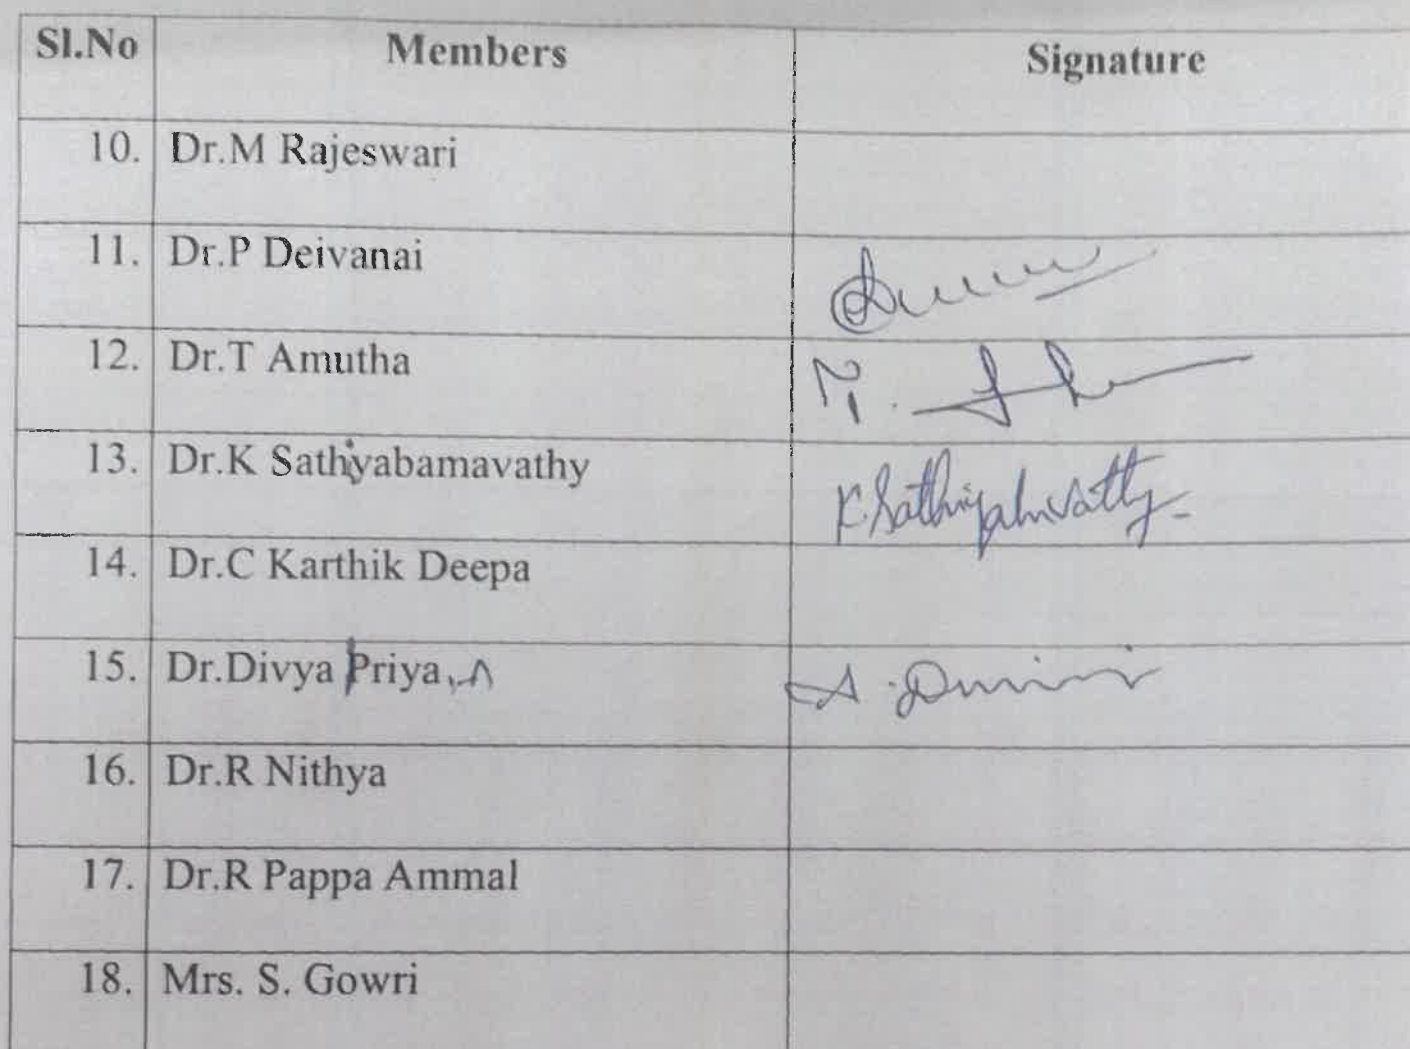 Sl.No Members Signature
10. Dr.M Rajeswari
11. Dr.P Deivanai
12. Dr.T Amutha T.
13. Dr.K Sathiyabamavathy
14. Dr.C Karthik Deepa
15. Dr.Divya Priya A.
16. Dr.R Nithya
17. Dr.R Pappa Ammal
18. Mrs. S. Gowri